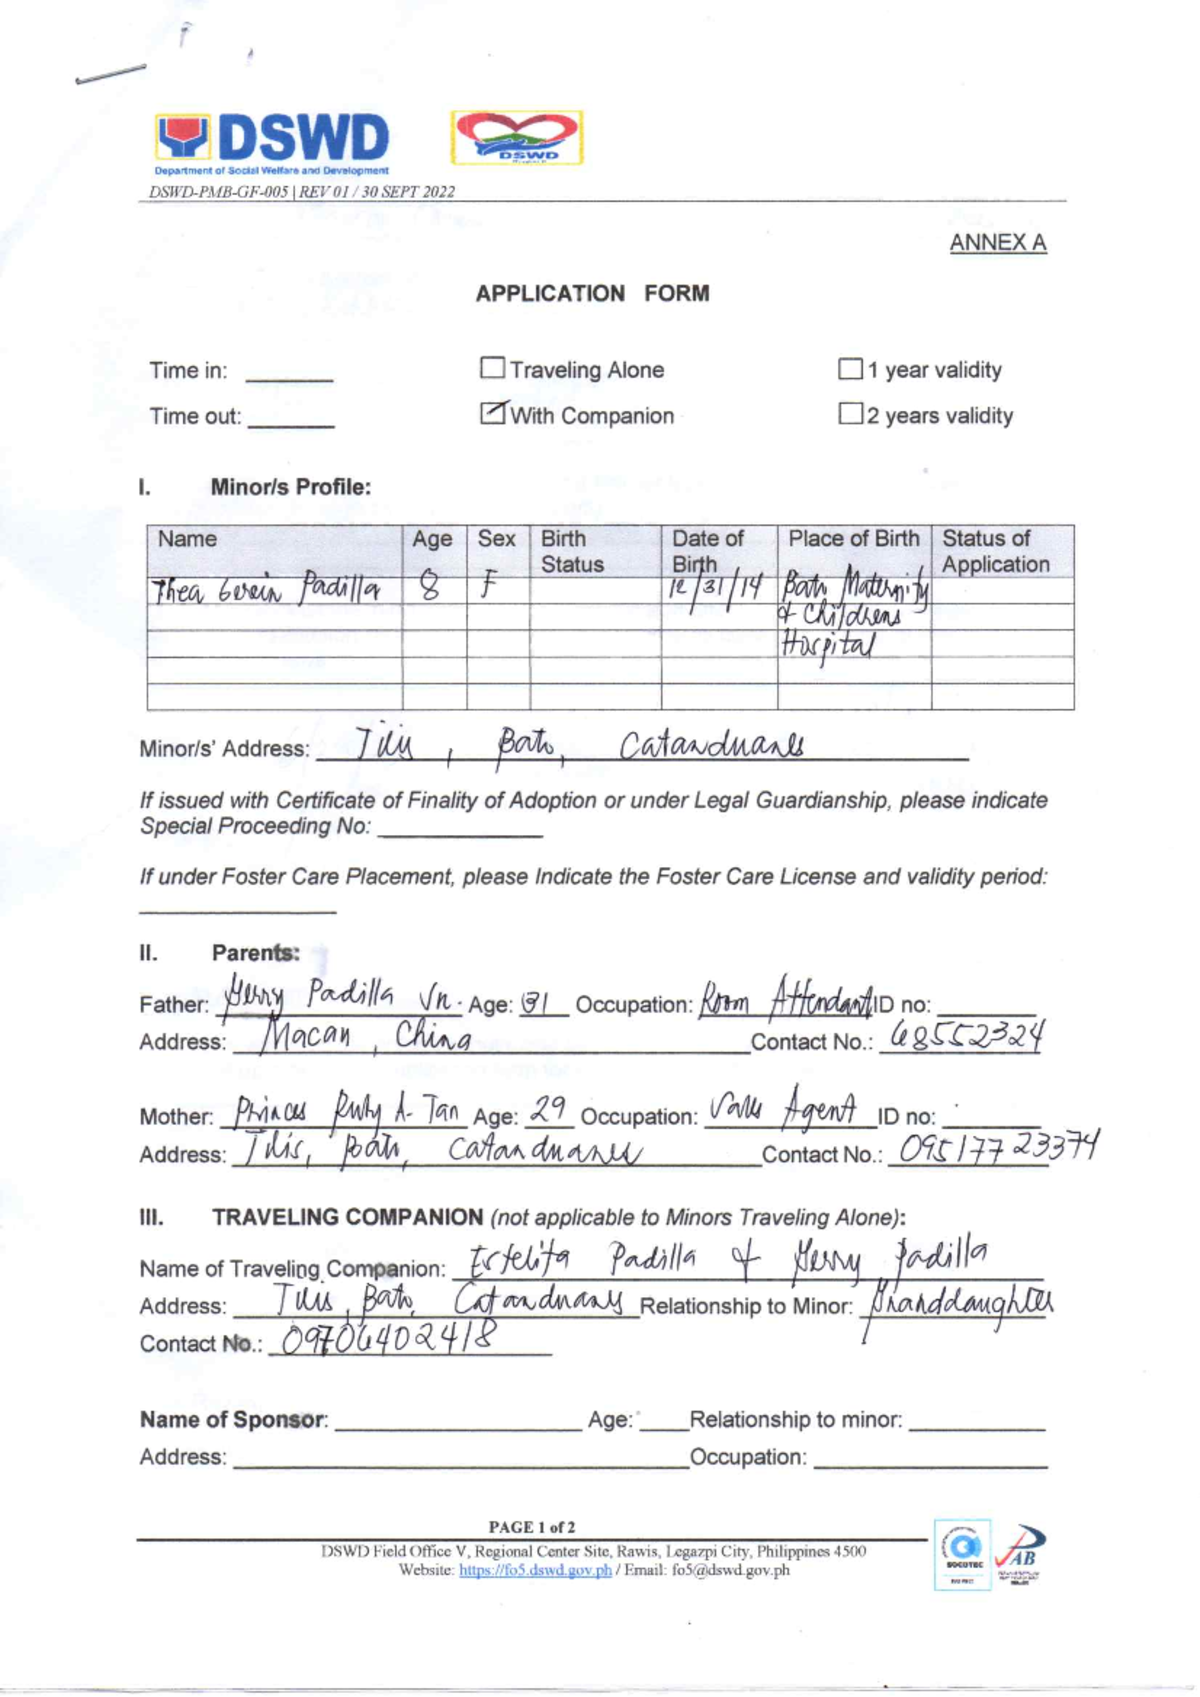 DSWD
DSWD
Department of Social Welfare and Development
DSWD-PMB-GF-005 | REV 01 / 30 SEPT 2022
ANNEX A
APPLICATION FORM
Time in: Traveling Alone 1 year validity
Time out: With Companion 2 years validity
I. Minor/s Profile:
Name Age Sex Birth Status Date of Birth Place of Birth Status of Application
Thea Padilla 8 F 12/31/14 Bato Maternity
& Childrens
Hospital
Minor/s' Address: Tilis, Bato, Catanduanes
If issued with Certificate of Finality of Adoption or under Legal Guardianship, please indicate
Special Proceeding No:
If under Foster Care Placement, please Indicate the Foster Care License and validity period:
II. Parents:
Father: Gerry Padilla Jr. Age: 31 Occupation: Room Attendant ID no:
Address: Macau, China Contact No.: 68552324
Mother: Princes Ruby A. Tan Age: 29 Occupation: Sales Agent ID no:
Address: Tilis, Bato, Catanduanes Contact No.: 09517723374
III. TRAVELING COMPANION (not applicable to Minors Traveling Alone):
Name of Traveling Companion: Estelita Padilla & Gerry Padilla
Address: Tilis, Bato, Catanduanes Relationship to Minor: Granddaughter
Contact No.: 09706402418
Name of Sponsor: Age: Relationship to minor:
Address: Occupation:
PAGE 1 of 2
DSWD Field Office V, Regional Center Site, Rawis, Legazpi City, Philippines 4500
Website: https://fo5.dswd.gov.ph / Email: fo5@dswd.gov.ph
SOCOTEC
PAB